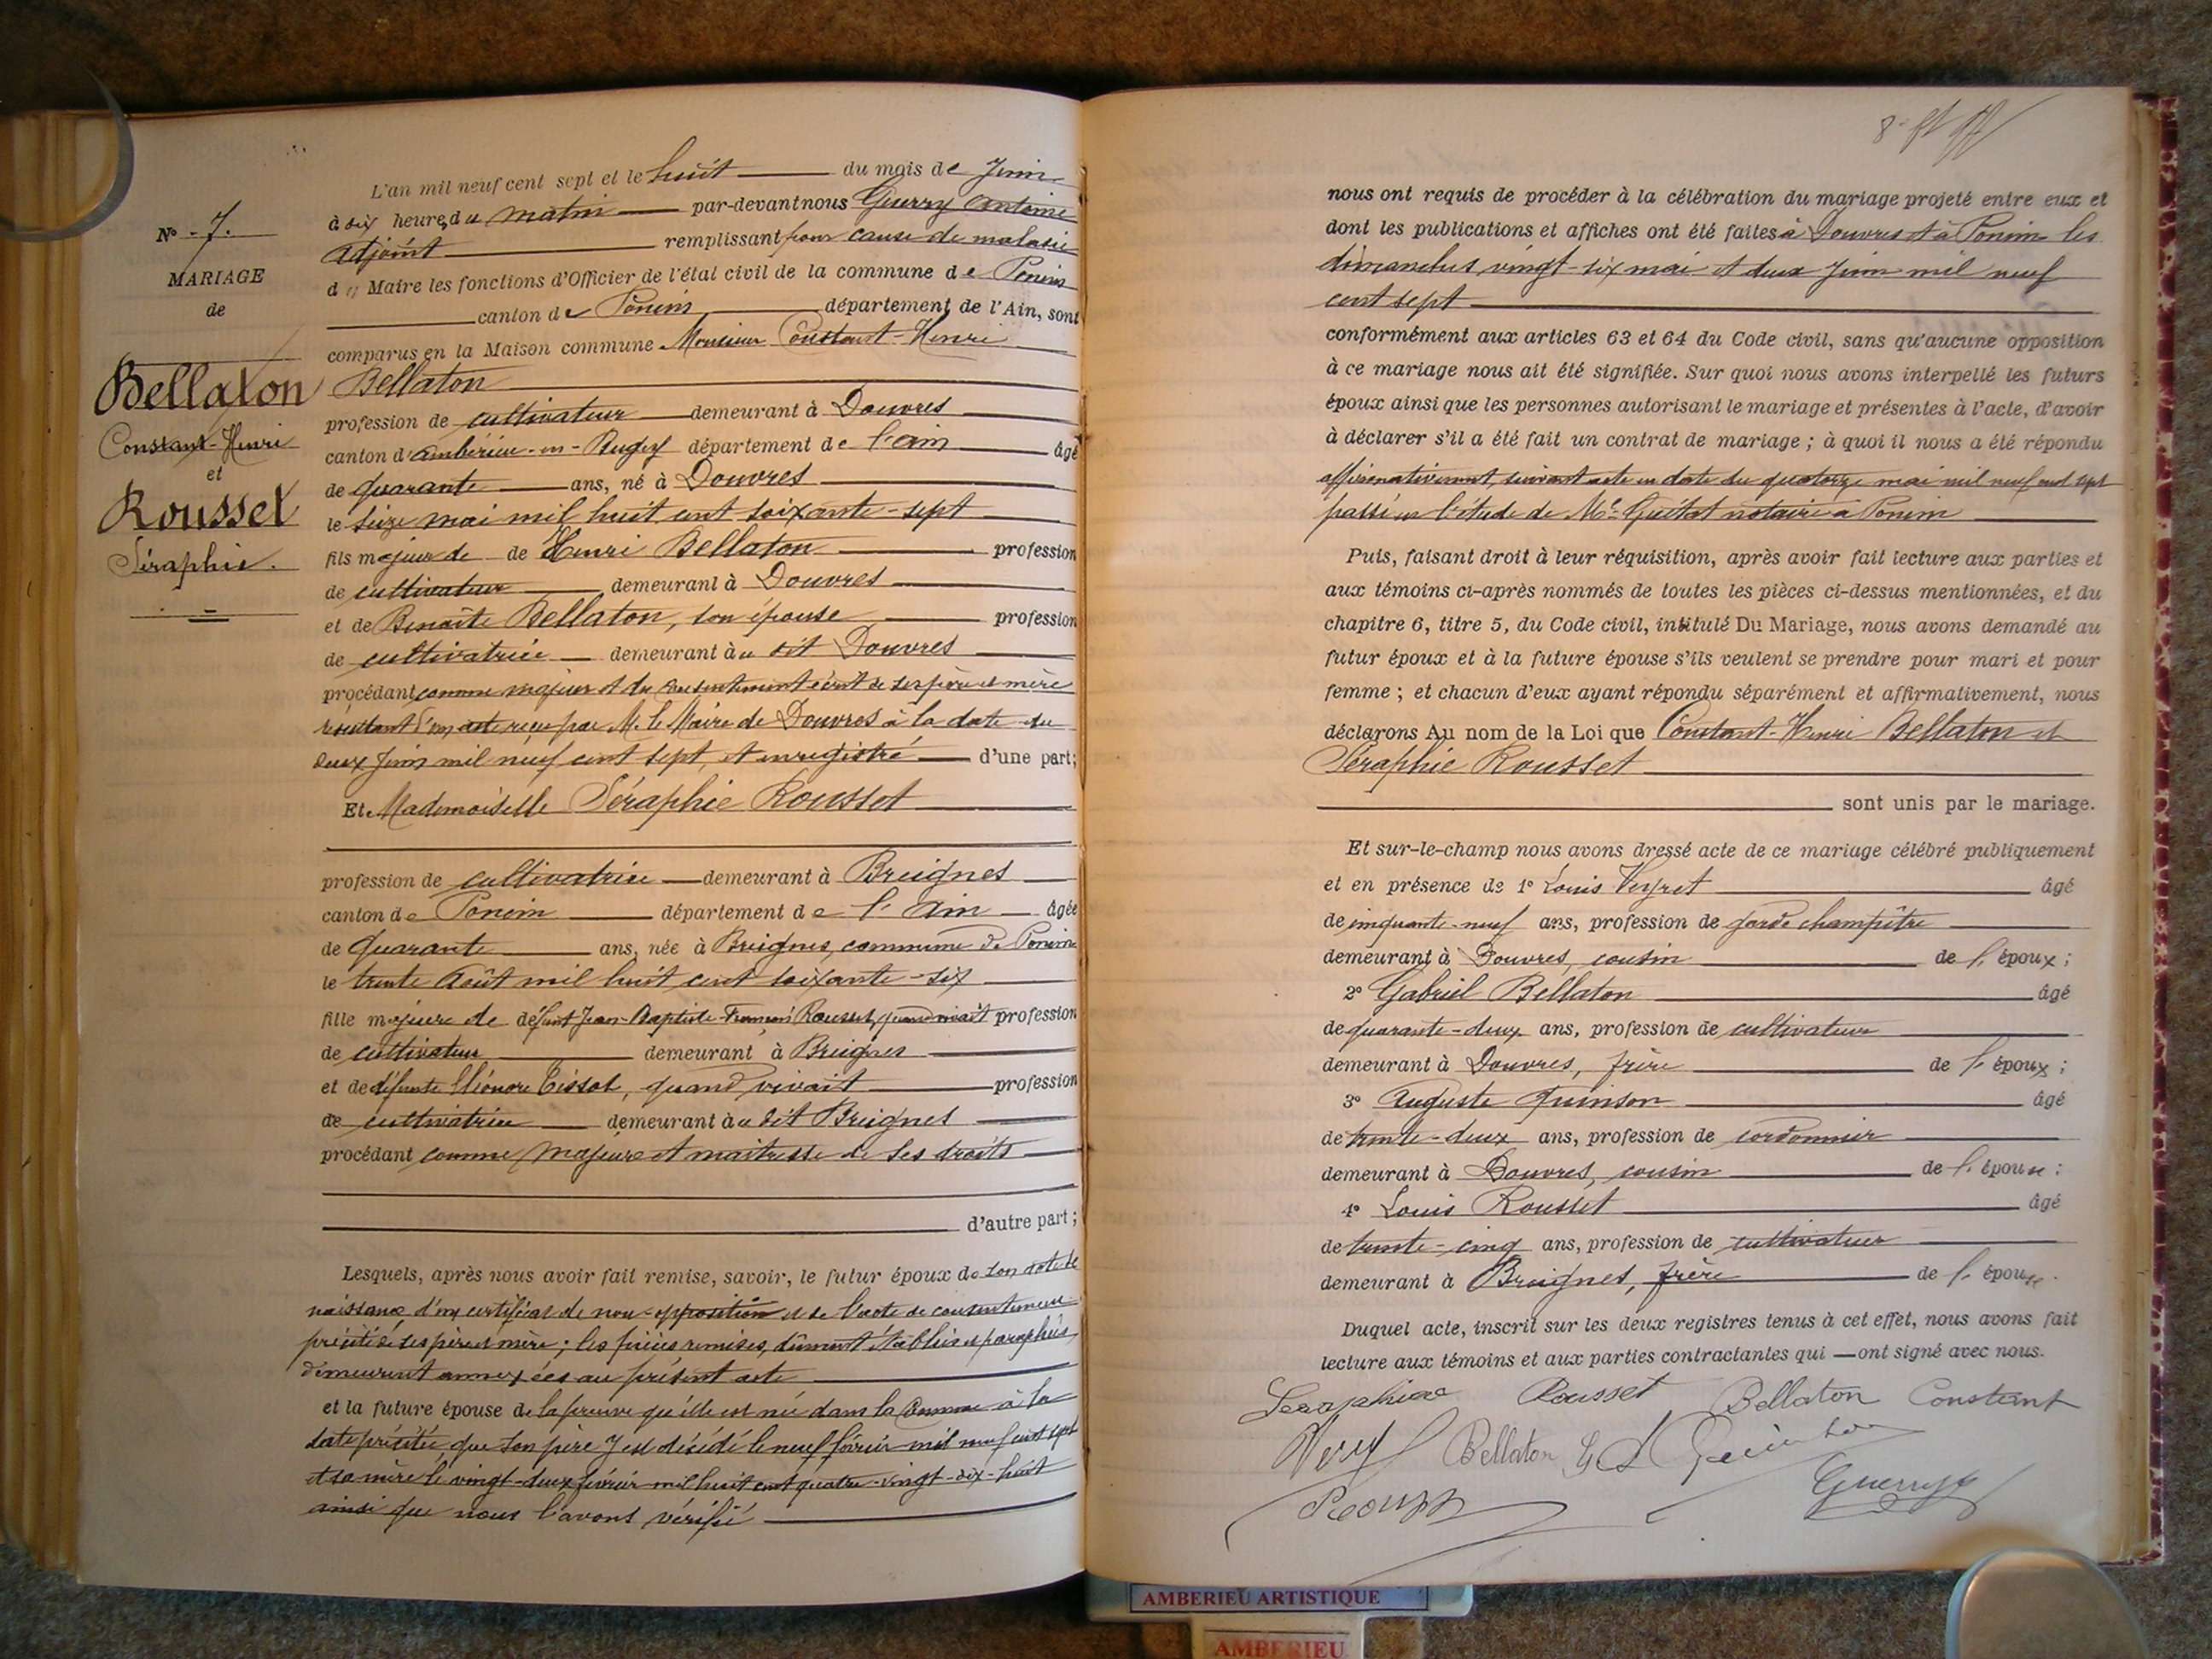 L'an mil neuf cent sept et le huit du mois de Juin
à dix heures du matin par-devant nous Guerry Antoine
adjoint remplissant pour cause de maladie
du Maire les fonctions d'Officier de l'état civil de la commune de Poncin
canton de Poncin département de l'Ain, sont
comparus en la Maison commune Monsieur Constant-Henri
Bellaton
profession de cultivateur demeurant à Douvres
canton d'Ambérieu-en-Bugey département de l'Ain âgé
de quarante ans, né à Douvres
le seize mai mil huit cent soixante-sept
fils majeur de de Henri Bellaton profession
de cultivateur demeurant à Douvres
et de Benoîte Bellaton, son épouse profession
de cultivatrice demeurant au dit Douvres
procédant comme majeur et du consentement écrit de ses père et mère
résultant d'un acte reçu par M. le Maire de Douvres à la date du
deux Juin mil neuf cent sept, et enregistré d'une part;
Et Mademoiselle Séraphie Rousset
profession de cultivatrice demeurant à Breignes
canton de Poncin département de l'Ain âgée
de quarante ans, née à Breignes, commune de Poncin
le trente Août mil huit cent soixante-six
fille majeure de défunt Jean-Baptiste-François Rousset, quand vivait profession
de cultivateur demeurant à Breignes
et de défunte Eléonore Tissot, quand vivait profession
de cultivatrice demeurant au dit Breignes
procédant comme majeure et maîtresse de ses droits
d'autre part;
Lesquels, après nous avoir fait remise, savoir, le futur époux de son acte de
naissance d'un certificat de non-opposition et de l'acte de consentement
précité de ses père et mère; les pièces remises, dûment établies et paraphées
demeurent annexées au présent acte
et la future épouse de la preuve qu'elle est née dans la Commune à la
date précitée que son père y est décédé le neuf février mil neuf cent sept
et sa mère le vingt-deux février mil huit cent quatre-vingt-dix-huit
ainsi que nous l'avons vérifié
No 7.
MARIAGE
de
Bellaton
Constant-Henri
et
Rousset
Séraphie.
nous ont requis de procéder à la célébration du mariage projeté entre eux et
dont les publications et affiches ont été faites à Douvres et à Poncin les
dimanches vingt-six mai et deux Juin mil neuf
cent sept
conformément aux articles 63 et 64 du Code civil, sans qu'aucune opposition
à ce mariage nous ait été signifiée. Sur quoi nous avons interpellé les futurs
époux ainsi que les personnes autorisant le mariage et présentes à l'acte, d'avoir
à déclarer s'il a été fait un contrat de mariage; à quoi il nous a été répondu
affirmativement, suivant acte en date du quatorze mai mil neuf cent sept
passé en l'étude de Me Guétat notaire à Poncin
Puis, faisant droit à leur réquisition, après avoir fait lecture aux parties et
aux témoins ci-après nommés de toutes les pièces ci-dessus mentionnées, et du
chapitre 6, titre 5, du Code civil, intitulé Du Mariage, nous avons demandé au
futur époux et à la future épouse s'ils veulent se prendre pour mari et pour
femme; et chacun d'eux ayant répondu séparément et affirmativement, nous
déclarons Au nom de la Loi que Constant-Henri Bellaton et
Séraphie Rousset
sont unis par le mariage.
Et sur-le-champ nous avons dressé acte de ce mariage célébré publiquement
et en présence de 1° Louis Veyret âgé
de cinquante-neuf ans, profession de garde champêtre
demeurant à Douvres, cousin de l'époux;
2° Gabriel Bellaton âgé
de quarante-deux ans, profession de cultivateur
demeurant à Douvres, frère de l'époux;
3° Auguste Quinson âgé
de trente-deux ans, profession de cordonnier
demeurant à Douvres, cousin de l'épouse;
4° Louis Rousset âgé
de trente-cinq ans, profession de cultivateur
demeurant à Breignes, frère de l'épouse.
Duquel acte, inscrit sur les deux registres tenus à cet effet, nous avons fait
lecture aux témoins et aux parties contractantes qui ont signé avec nous.
Rousset Bellaton Constant
Bellaton G
Guerry
AMBERIEU ARTISTIQUE
AMBERIEU